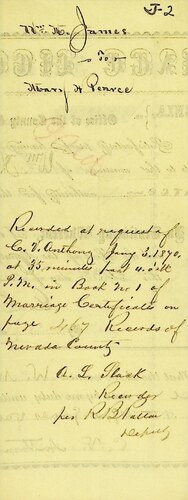 J-2
Wm H. James
to
Mary A Pearce
Recorded at request of
C. V. Anthony Jany 3. 1870,
at 35 minutes past 4 o'clk
P.M. in Book No 1 of
Marriage Certificates on
page 467 Records of
Nevada County
Recorder
per R B Patton
Deputy